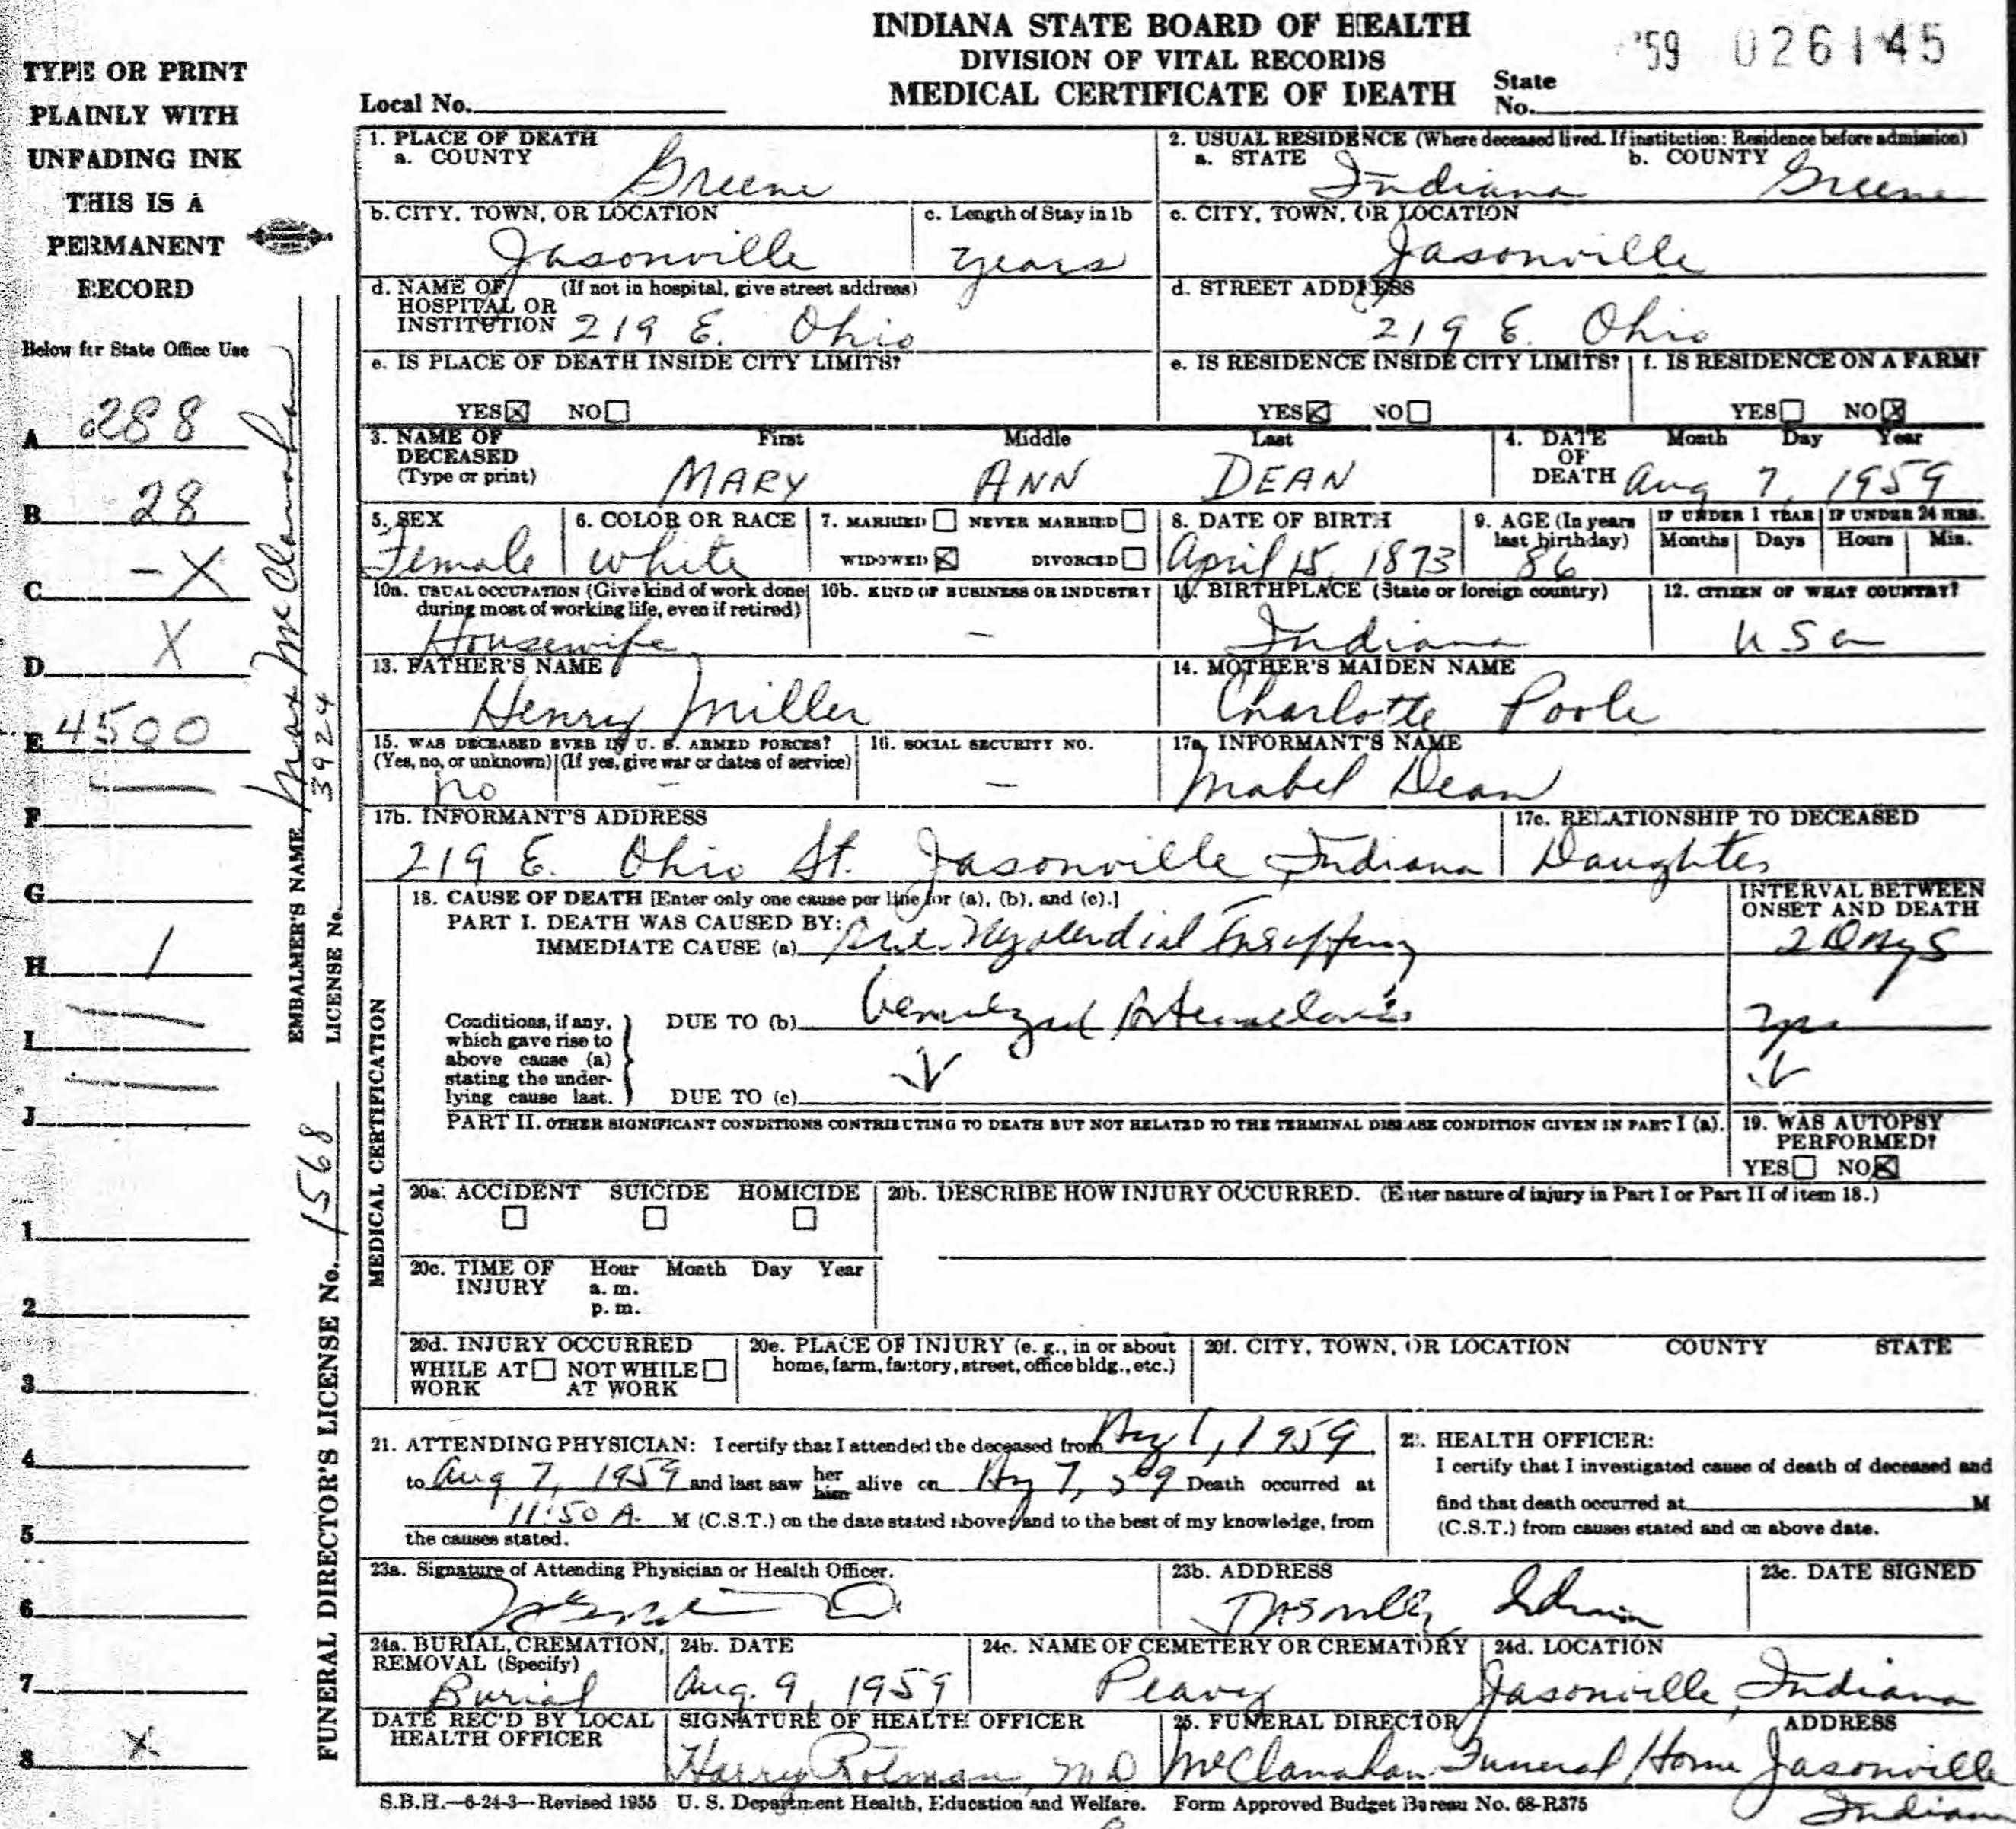 INDIANA STATE BOARD OF HEALTH
DIVISION OF VITAL RECORDS
MEDICAL CERTIFICATE OF DEATH
'59 026145
Local No.
State No.
TYPE OR PRINT
PLAINLY WITH
UNFADING INK
THIS IS A
PERMANENT
RECORD
Below for State Office Use
A 288
B 28
C -X
D X
E 4500
F
G
H 1
I
J
1
2
3
4
5
6
7
8 X
EMBALMER'S NAME Max McClanahan
LICENSE No. 3924
FUNERAL DIRECTOR'S LICENSE No. 1568
1. PLACE OF DEATH
a. COUNTY Greene
2. USUAL RESIDENCE (Where deceased lived. If institution: Residence before admission)
a. STATE Indiana b. COUNTY Greene
b. CITY, TOWN, OR LOCATION Jasonville
c. Length of Stay in 1b years
c. CITY, TOWN, OR LOCATION Jasonville
d. NAME OF HOSPITAL OR INSTITUTION (If not in hospital, give street address) 219 E. Ohio
d. STREET ADDRESS 219 E. Ohio
e. IS PLACE OF DEATH INSIDE CITY LIMITS?
YES☒ NO☐
e. IS RESIDENCE INSIDE CITY LIMITS?
YES☒ NO☐
f. IS RESIDENCE ON A FARM?
YES☐ NO☒
3. NAME OF DECEASED (Type or print)
First Middle Last
MARY ANN DEAN
4. DATE OF DEATH Month Day Year
Aug 7, 1959
5. SEX Female
6. COLOR OR RACE White
7. MARRIED☐ NEVER MARRIED☐
WIDOWED☒ DIVORCED☐
8. DATE OF BIRTH April 15, 1873
9. AGE (In years last birthday) 86
IF UNDER 1 YEAR Months Days
IF UNDER 24 HRS. Hours Min.
10a. USUAL OCCUPATION (Give kind of work done during most of working life, even if retired) Housewife
10b. KIND OF BUSINESS OR INDUSTRY -
11. BIRTHPLACE (State or foreign country) Indiana
12. CITIZEN OF WHAT COUNTRY? USa
13. FATHER'S NAME Henry Miller
14. MOTHER'S MAIDEN NAME Charlotte Poole
15. WAS DECEASED EVER IN U. S. ARMED FORCES?
(Yes, no, or unknown) (If yes, give war or dates of service)
no -
16. SOCIAL SECURITY NO. -
17a. INFORMANT'S NAME Mabel Dean
17b. INFORMANT'S ADDRESS 219 E. Ohio St. Jasonville, Indiana
17c. RELATIONSHIP TO DECEASED Daughter
MEDICAL CERTIFICATION
18. CAUSE OF DEATH [Enter only one cause per line for (a), (b), and (c).]
PART I. DEATH WAS CAUSED BY:
IMMEDIATE CAUSE (a) Myocardial
INTERVAL BETWEEN ONSET AND DEATH
2 DAys
Conditions, if any, which gave rise to above cause (a) stating the underlying cause last.
DUE TO (b) Generalized yrs
DUE TO (c)
PART II. OTHER SIGNIFICANT CONDITIONS CONTRIBUTING TO DEATH BUT NOT RELATED TO THE TERMINAL DISEASE CONDITION GIVEN IN PART I (a).
19. WAS AUTOPSY PERFORMED?
YES☐ NO☒
20a. ACCIDENT SUICIDE HOMICIDE
☐ ☐ ☐
20b. DESCRIBE HOW INJURY OCCURRED. (Enter nature of injury in Part I or Part II of item 18.)
20c. TIME OF INJURY Hour Month Day Year
a. m.
p. m.
20d. INJURY OCCURRED
WHILE AT WORK☐ NOT WHILE AT WORK☐
20e. PLACE OF INJURY (e. g., in or about home, farm, factory, street, office bldg., etc.)
20f. CITY, TOWN, OR LOCATION COUNTY STATE
21. ATTENDING PHYSICIAN: I certify that I attended the deceased from 1, 1959,
to Aug 7, 1959 and last saw her him alive on 7, Death occurred at
11:50 A. M (C.S.T.) on the date stated above, and to the best of my knowledge, from
the causes stated.
22. HEALTH OFFICER:
I certify that I investigated cause of death of deceased and
find that death occurred at M
(C.S.T.) from causes stated and on above date.
23a. Signature of Attending Physician or Health Officer.
23b. ADDRESS Jasonville Indiana
23c. DATE SIGNED
24a. BURIAL, CREMATION, REMOVAL (Specify) Burial
24b. DATE Aug. 9, 1959
24c. NAME OF CEMETERY OR CREMATORY Peavy
24d. LOCATION Jasonville, Indiana
DATE REC'D BY LOCAL HEALTH OFFICER
SIGNATURE OF HEALTH OFFICER Harry Rotman, MD
25. FUNERAL DIRECTOR ADDRESS
McClanahan Funeral Home Jasonville
Indiana
S.B.H.—6-24-3—Revised 1955 U. S. Department Health, Education and Welfare. Form Approved Budget Bureau No. 68-R375